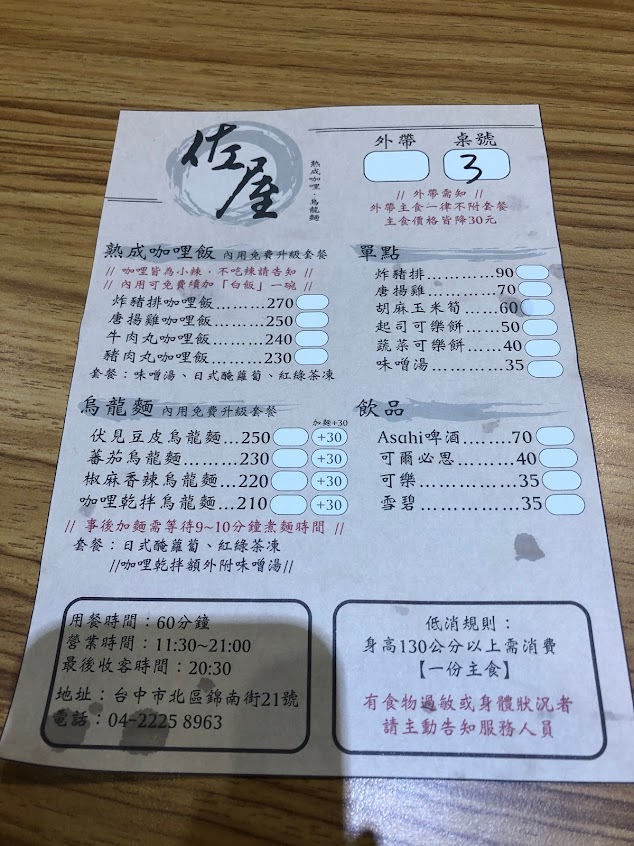 佐屋
熟成咖哩・烏龍麵
外帶 桌號
3
// 外帶需知 //
外帶主食一律不附套餐
主食價格皆降30元
熟成咖哩飯 內用免費升級套餐
// 咖哩皆為小辣,不吃辣請告知 //
// 內用可免費續加「白飯」一碗 //
炸豬排咖哩飯......270
唐揚雞咖哩飯......250
牛肉丸咖哩飯......240
豬肉丸咖哩飯......230
套餐:味噌湯、日式醃蘿蔔、紅綠茶凍
單點
炸豬排............90
唐揚雞............70
胡麻玉米筍.....60
起司可樂餅.....50
蔬菜可樂餅.....40
味噌湯............35
烏龍麵 內用免費升級套餐
加麵+30
伏見豆皮烏龍麵...250 +30
蕃茄烏龍麵.........230 +30
椒麻香辣烏龍麵...220 +30
咖哩乾拌烏龍麵...210 +30
// 事後加麵需等待9~10分鐘煮麵時間 //
套餐:日式醃蘿蔔、紅綠茶凍
//咖哩乾拌額外附味噌湯//
飲品
Asahi啤酒........70
可爾必思..........40
可樂................35
雪碧................35
用餐時間:60分鐘
營業時間:11:30~21:00
最後收客時間:20:30
地址:台中市北區錦南街21號
電話:04-2225 8963
低消規則:
身高130公分以上需消費
【一份主食】
有食物過敏或身體狀況者
請主動告知服務人員